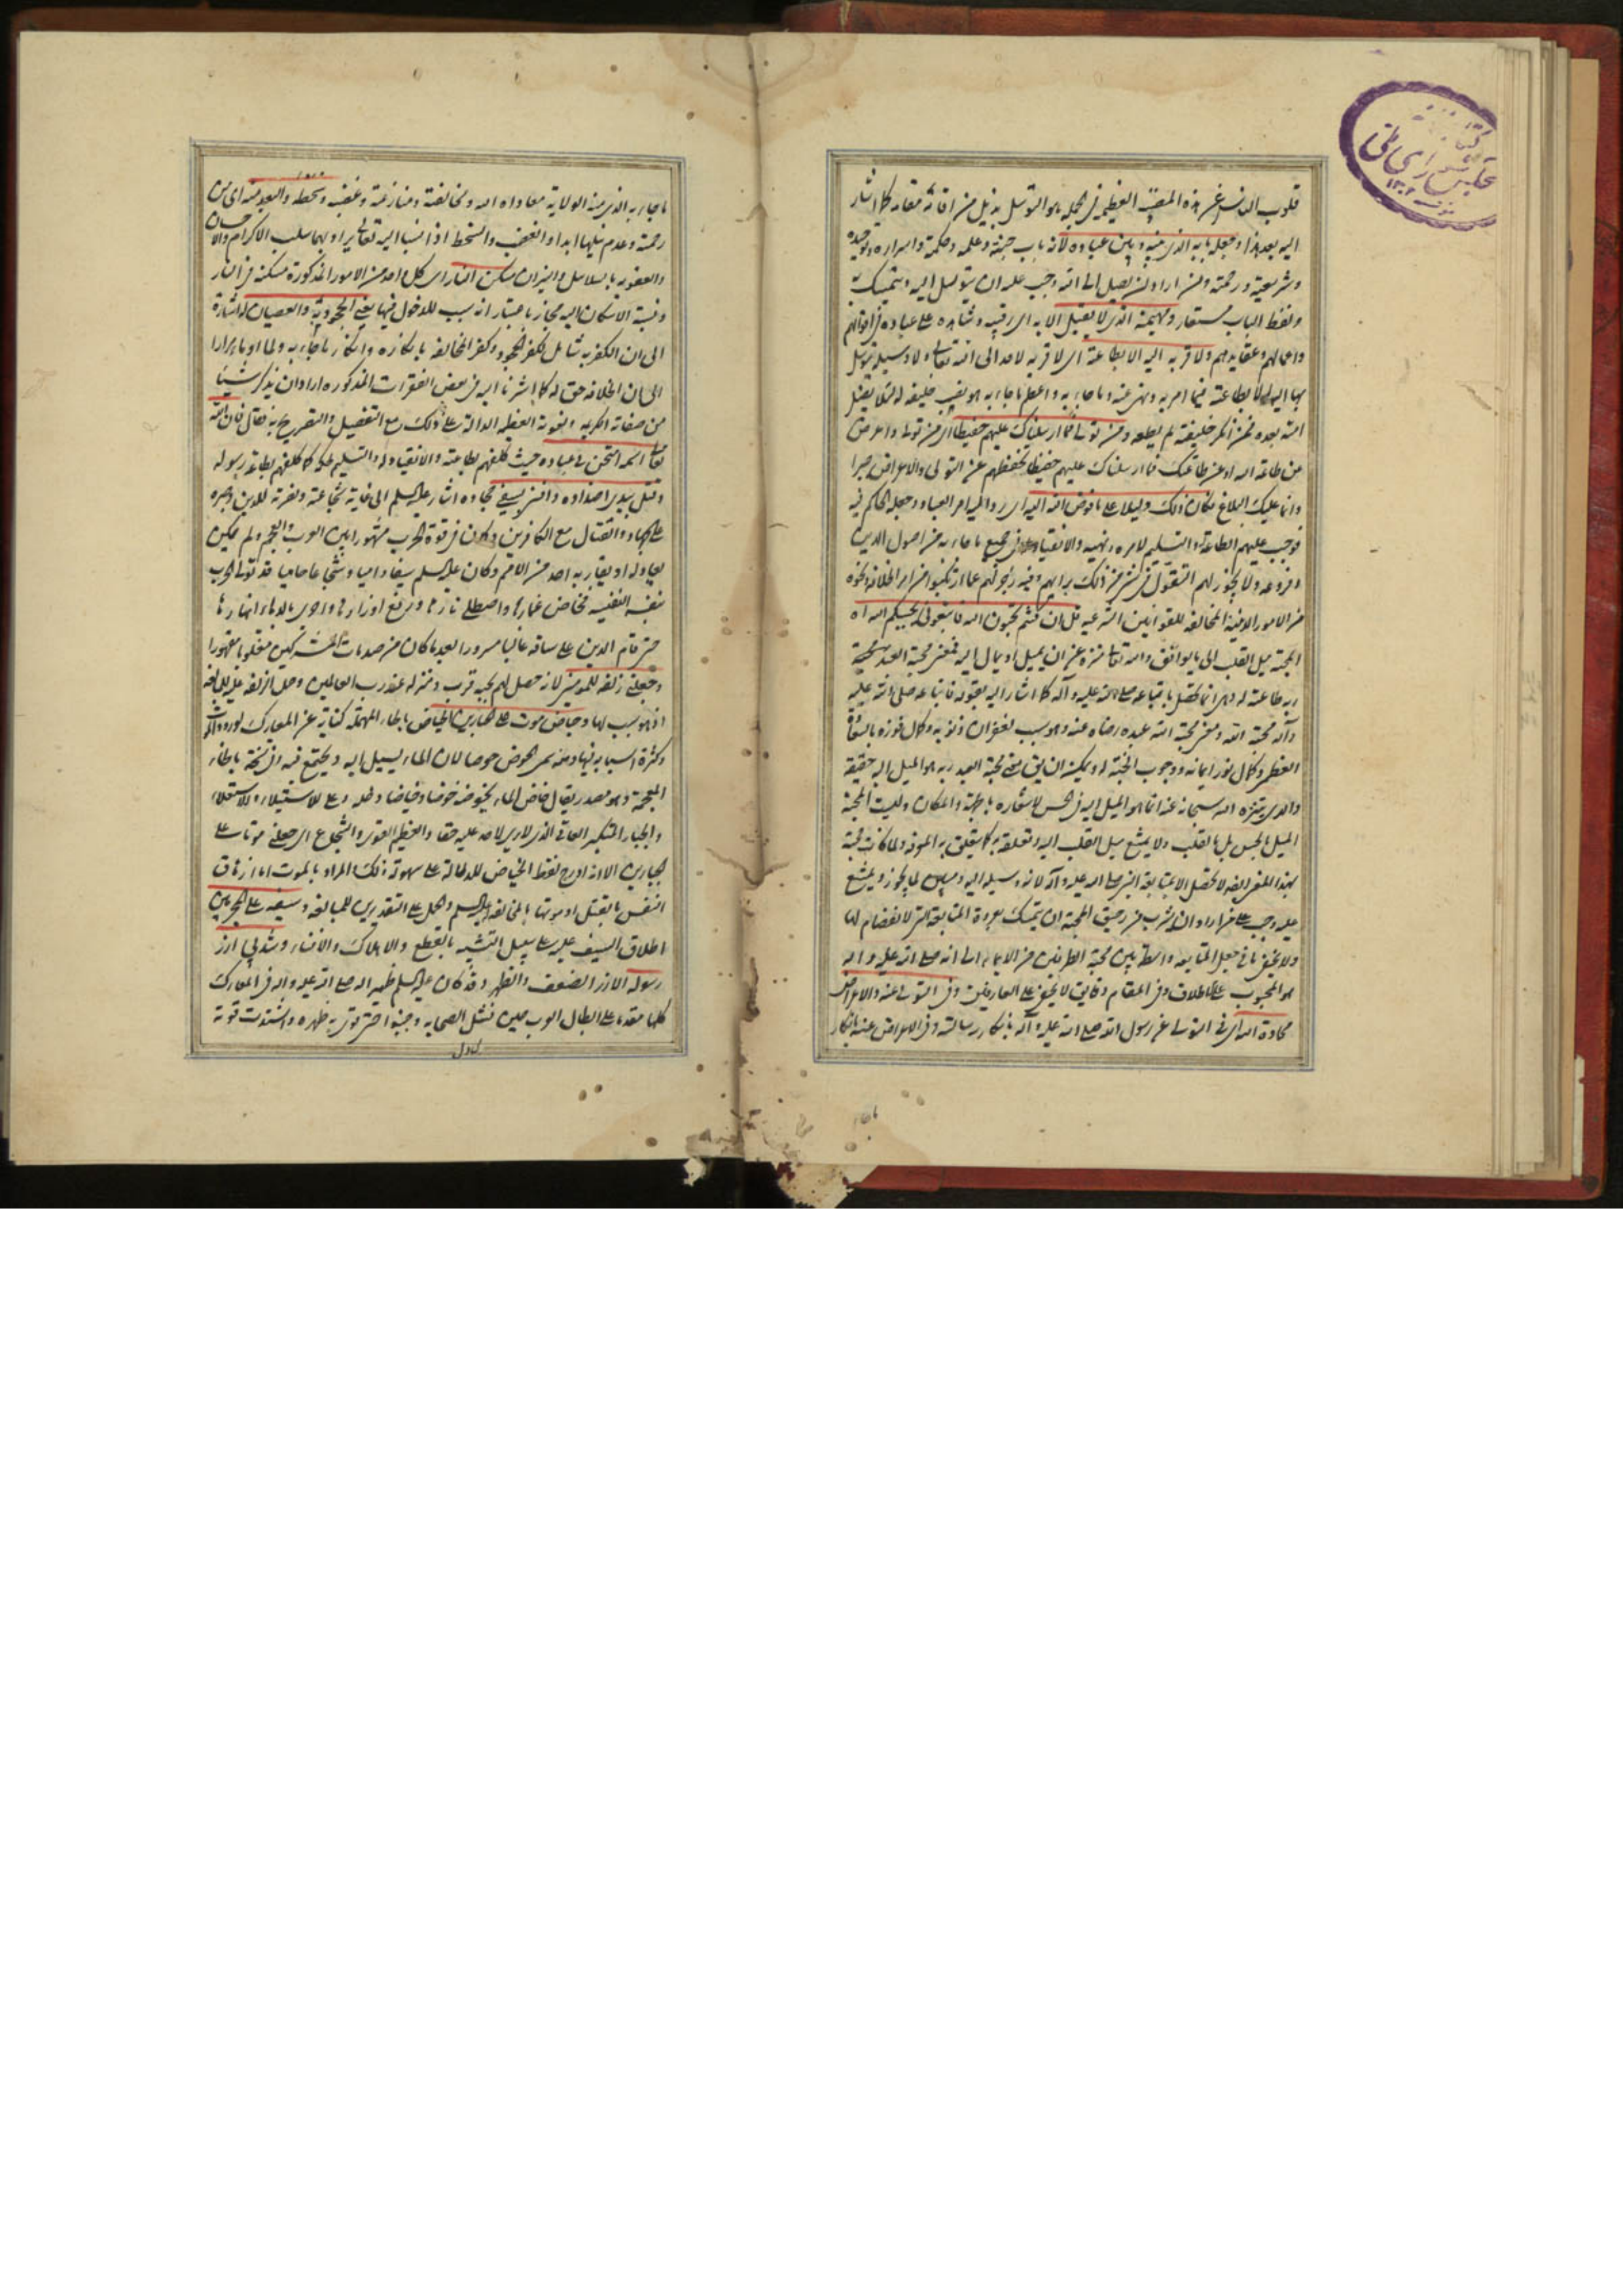 قلوب الناس عن هذه المنقبة العظيمة في الجملة هو التوسل بذيل من افاته مقاله كما اشار
اليه بعد هذا وجعله بابه الذي بينه وبين عباده لانه باب جنته وعلمه وحكمته واسراره وتوحيده
وشريعته ورحمته ومن اراد ان يصل الى الله وجب عليه ان يتوسل اليه ويتمسك به
ولفظ الباب مستعار ومهيمنه الذي لا يقبل الا به اى رقيبه وشاهده على عباده في اقوالهم
واعمالهم وعقايدهم ولا قربة اليه الا بطاعته اى لا قربة لاحد الى الله تعالى ولا وسيلة يتوسل
بها اليه الا بطاعته فيما امر به ونهى عنه وما جاء به واعظم ما جاء به هو نصب خليفة له لئلا يضل
امته بعده فمن انكر خليفته لم يطعه ومن تولى فما ارسلناك عليهم حفيظا اى من تولى واعرض
عن طاعة الله او عن طاعتك فما ارسلناك عليهم حفيظا تحفظهم عن التولى والاعراض جبرا
وانما عليك البلاغ فكان ذلك دليلا على ما فوض الله اليه اى رد اليه امر العباد وجعله الحاكم فيه
فوجب عليهم الطاعة له والتسليم لامره ونهيه والانقياد له في جميع ما جاء به من اصول الدين
وفروعه ولا يجوز لهم التقول في شىء من ذلك برايهم وفيه زجر لهم عما ارتكبوا من امر الخلافة ونحوه
من الامور الدينية المخالفة للقوانين الشرعية قل ان كنتم تحبون الله فاتبعوني يحببكم الله اه
المحبة ميل القلب الى ما يوافق والله تعالى منزه عن ان يميل او يمال اليه فمعنى محبة العبد
ربه طاعته له وهى انما تحصل باتباعه صلى الله عليه وآله كما اشار اليه بقوله فاتباعه صلى الله عليه
وآله محبة الله ومعنى محبة الله عبده رضاه عنه وهو سبب لغفران ذنوبه وكمال فوزه بالسعادة
العظمى وكمال نور ايمانه ووجوب الجنة له ويمكن ان يق معنى محبة العبد ربه هو الميل اليه حقيقة
والذي يتنزه الله سبحانه عنه انما هو الميل اليه في الحس لاشعاره بالجهة والمكان وليست المحبة
الميل بالحس بل بالقلب ولا يمتنع ميل القلب اليه وتعلقه به كما يتعلق به المعرفة ولما كانت محبته
بهذا المعنى ايضا لا تحصل الا بمتابعة النبي صلى الله عليه وآله لانه وسيلة اليه لما يجوز ويمتنع
عليه وجب على من اراد ان يشرب من رحيق المحبة ان يتمسك بعروة المتابعة التي لا انفصام لها
ولا يخفى ما في جعل المتابعة واسطة بين محبة الطرفين من الايماء الى انه صلى الله عليه وآله
هو المحبوب على الاطلاق وفي المقام دقايق لا تخفى على العارفين وفي التولى عنه والاعراض
محادة الله اى في التولى عن رسول الله صلى الله عليه وآله بانكار رسالته وفي الاعراض عنه بانكار
ما جاء به الذي منه الولاية معاداة الله ومخالفته ومنازعته وغضبه وسخطه والبعد منه اى من
رحمته وعدم نيلها ابدا والغضب والسخط اذا نسبا اليه تعالى يراد بهما سلب الاكرام والاحسان
والعقوبة بالسلاسل والنيران مسكن النار اى كل احد من الامور المذكورة مسكنه في النار
ونسبة الاسكان اليه مجاز باعتبار انه سبب للدخول فيها يعني الجحود به والعصيان له اشارة
الى ان الكفر به شامل لكفر الجحود وكفر المخالفة بانكاره وانكار ما جاء به ولما اومأ مرارا
الى ان الخلافة حق له كما اشرنا اليه في بعض الفقرات المذكورة اراد ان يذكر شيئا
من صفاته الكريمة ونعوته العظيمة الدالة على ذلك مع التفضيل والتصريح به فقال فان الله
تعالى اسمه امتحن بي عباده حيث كلفهم بطاعته والانقياد له والتسليم له كما كلفهم بطاعة رسوله
وقتل بيدي اضداده وافنى بسيفي جحاده اشار عليه السلم الى غاية شجاعته ونصرته للدين وصبره
على الجهاد والقتال مع الكافرين وكان في قوة الحرب مشهورا بين العرب والعجم ولم يمكن
يعادله او يقاربه احد من الامم وكان عليه السلم سيفا داميا وشجاعا حاميا قد تولى الحرب
بنفسه النفيسة فخاض غمارها واصطلى نارها ورفع اوزارها واجرى بالدماء انهارها
حتى قام الدين على ساقه غالبا مسرورا بعد ما كان من صدمات المشركين مغلوبا مقهورا
وجعلني زلفة للمؤمنين لانه حصل لهم بحبه قرب ومنزلة عند رب العالمين وحمل الزلفة عليه للمبالغة
اذ هو سبب لها وحياض موت على الجبارين الحياض بالحاء المهملة كناية عن المعارك لورود الموت
وكثرة اسبابه فيها ومنه سمى الحوض حوضا لان الماء يسيل اليه ويجتمع فيه وفي نسخة بالخاء
المعجمة وهو مصدر يقال خاض الماء يخوضه خوضا وخياضا دخله وعلى للاستيلاء والاستعلاء
والجبار المتكبر العاتي الذي لا يرى لاحد عليه حقا والعظيم القوى والشجاع اى جعلني موتا على
الجبارين الا انه ادرج لفظ الخياض للدلالة على سهولة ذلك المراد بالموت اما ازهاق
النفس بالقتل او موتها بالمخالفة عليه السلم والحمل على التقديرين للمبالغة وسيفه على المجرمين
اطلاق السيف عليه على سبيل التشبيه بالقطع والاهلاك والافناء وشد بي ازر
رسوله الازر الضعف والظهر وقد كان عليه السلم ظهيرا له صلى الله عليه وآله في المعارك
كلها مقدما على ابطال العرب حين فشل الصحابة وجبنوا حتى قوى به ظهره واشتدت قوته